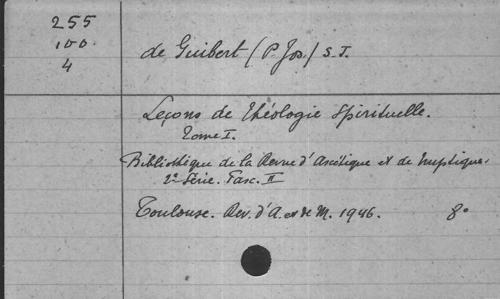 255
100
4
de Guibert (P. Jos) S.J.
Leçons de théologie spirituelle.
Tome I.
Bibliothèque de la Revue d'Ascétique et de Mystique.
2e Série. Fasc. II
Toulouse. Rev. d'A. et de M. 1946. 8°